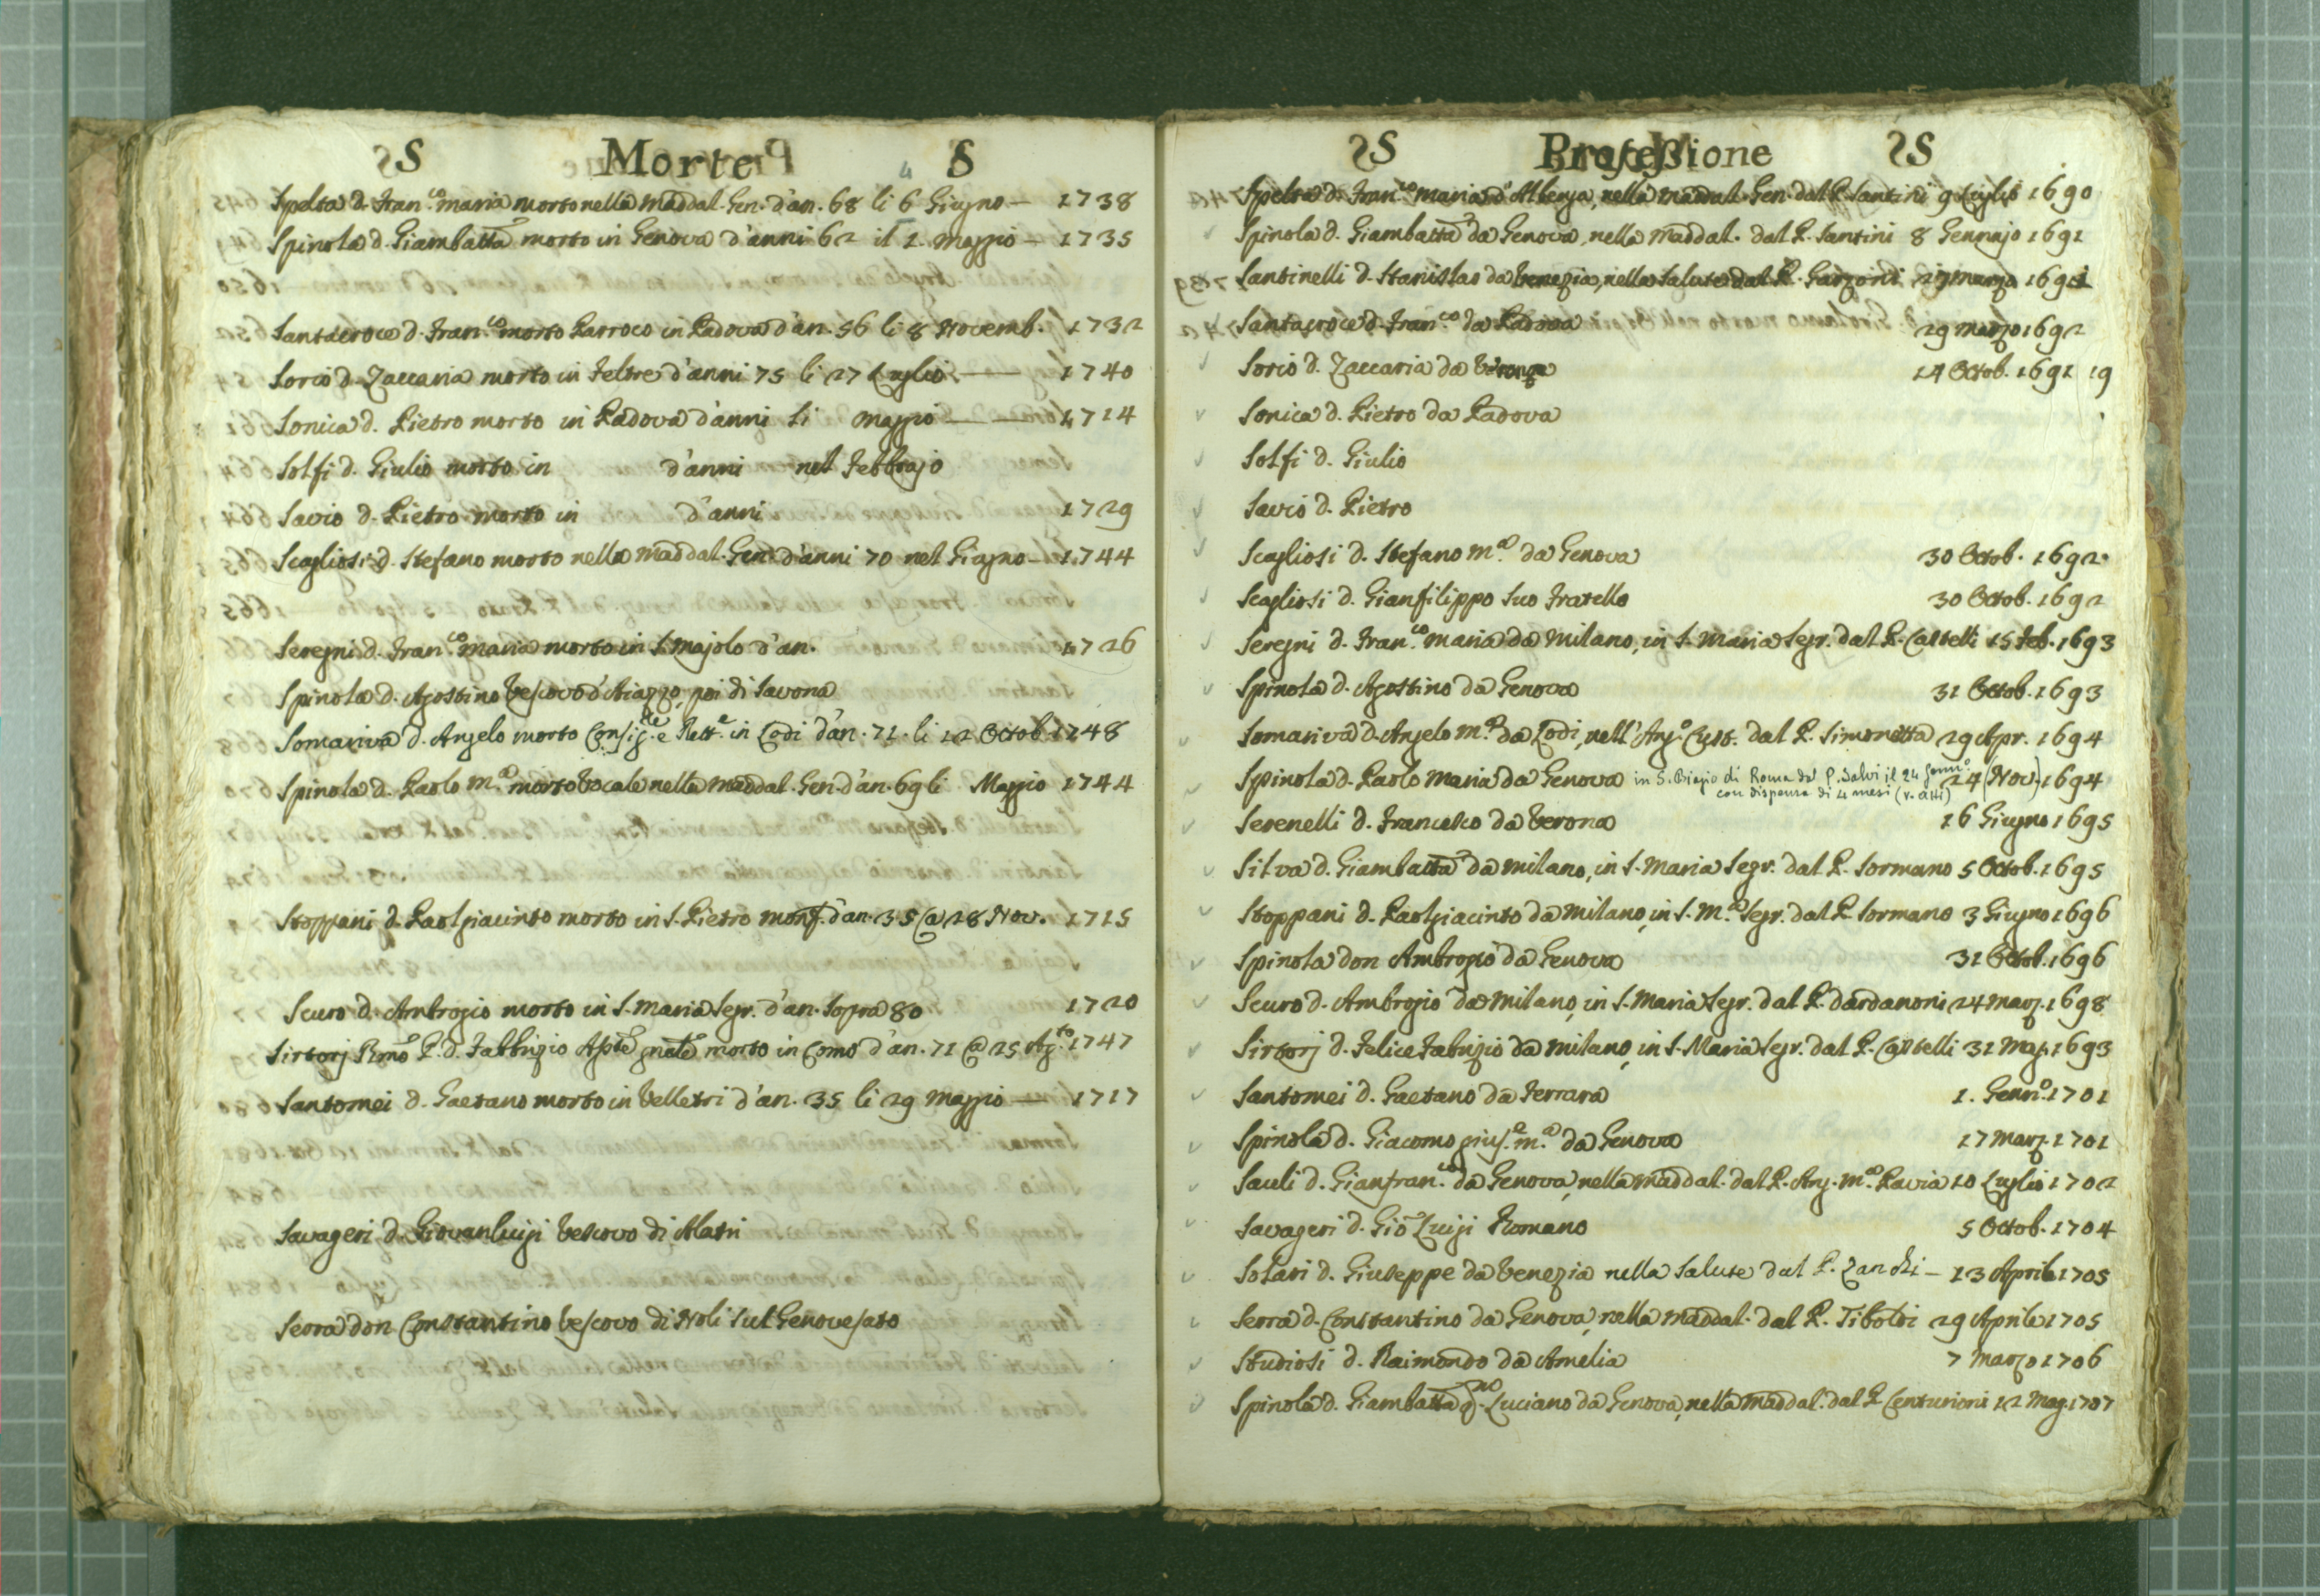 S Morte S
Spelta d. Fran.co maria morto nella Maddal. Gen. d'an. 68 li 6 Giugno — 1738
Spinola d. Giambatta morto in Genova d'anni 62 il 1. Maggio — 1735
Santacroce d. Fran.co morto Parroco in Padova d'an. 56 li 8 Novemb. 1732
Sorio d. Zaccaria morto in Feltre d'anni 75 li 27 Luglio — 1740
Sonica d. Pietro morto in Padova d'anni li Maggio — 1714
Solfi d. Giulio morto in d'anni nel Febbrajo
Savio d. Pietro morto in d'anni 1729
Scagliosi d. Stefano morto nella Maddal. Gen. d'anni 70 nel Giugno — 1744
Seregni d. Fran.co maria morto in S. Majolo d'an. 1726
Spinola d. Agostino Vescovo d'Aiazzo, poi di Savona
Somariva d. Angelo morto Consig.re e Rett.e in Lodi d'an. 71. li 12 Octob. 1748
Spinola d. Paolo M.a morto Vocale nella Maddal. Gen. d'an. 69 li Maggio 1744
Stoppani d. Paolgiacinto morto in S. Pietro monf. d'an. 35 @ 28 Nov. 1715
Scuro d. Ambrogio morto in S. Maria Segr. d'an. sopra 80 1720
Sirtorj Rmo P. d. Fabbrizio morto in Como d'an. 71 @ 25 Ag.to 1747
Santomei d. Gaetano morto in Velletri d'an. 35 li 29 Maggio — 1717
Savageri d. Giovanluigi Vescovo di Alatri
Serra don Constantino Vescovo di Noli sul Genovesato
S Professione S
Spelta d. Fran.co Maria d'Albenga, nella Maddal. Gen. dal P. Santini 9 Luglio 1690
Spinola d. Giambatta da Genova, nella Maddal. dal P. Santini 8 Gennajo 1691
Santinelli d. Stanislao da Venezia, nella Salute dal P. Garzoni 19 marzo 1691
Santacroce d. Fran.co da Padova 29 Marzo 1692
Sorio d. Zaccaria da Verona 14 Octob. 1691 19
Sonica d. Pietro da Padova
Solfi d. Giulio
Savio d. Pietro
Scagliosi d. Stefano M.a da Genova 30 Octob. 1692
Scagliosi d. Gianfilippo suo Fratello 30 Octob. 1692
Seregni d. Fran.co maria da Milano, in S. Maria Segr. dal P. Castelli 15 Feb. 1693
Spinola d. Agostino da Genova 31 Octob. 1693
Somariva d. Angelo M.a da Lodi, nell'Ang.o Cust. dal P. Simonetta 29 Apr. 1694
Spinola d. Paolo Maria da Genova in S. Biagio di Roma dal P. Salvi il 24 Genn.o 24 (Nov.) 1694
con dispensa di 4 mesi (v. atti)
Serenelli d. Francesco da Verona 16 Giugno 1695
Silva d. Giambatta da Milano, in S. Maria Segr. dal P. Sormano 5 Octob. 1695
Stoppani d. Paolgiacinto da Milano, in S. M.a Segr. dal P. Sormano 3 Giugno 1696
Spinola don Ambrogio da Genova 31 Octob. 1696
Scuro d. Ambrogio da Milano, in S. Maria Segr. dal P. Dardanoni 24 Marz. 1698
Sirtorj d. Felice Fabrizio da Milano, in S. Maria Segr. dal P. Castelli 31 Mag. 1693
Santomei d. Gaetano da Ferrara 1. Genn.o 1701
Spinola d. Giacomo gius.e m.a da Genova 17 Marz. 1701
Sauli d. Gianfran.co da Genova, nella Maddal. dal P. Ang. M.a Pavia 10 Luglio 1702
Savageri d. Gio Luigi Romano 5 Octob. 1704
Solari d. Giuseppe da Venezia nella Salute dal P. Zanchi — 13 Aprile 1705
Serra d. Constantino da Genova, nella Maddal. dal P. Tiboldi 29 Aprile 1705
Studiosi d. Raimondo da Amelia 7 Marzo 1706
Spinola d. Giambatta Luciano da Genova, nella Maddal. dal P. Centurioni 12 Mag. 1707